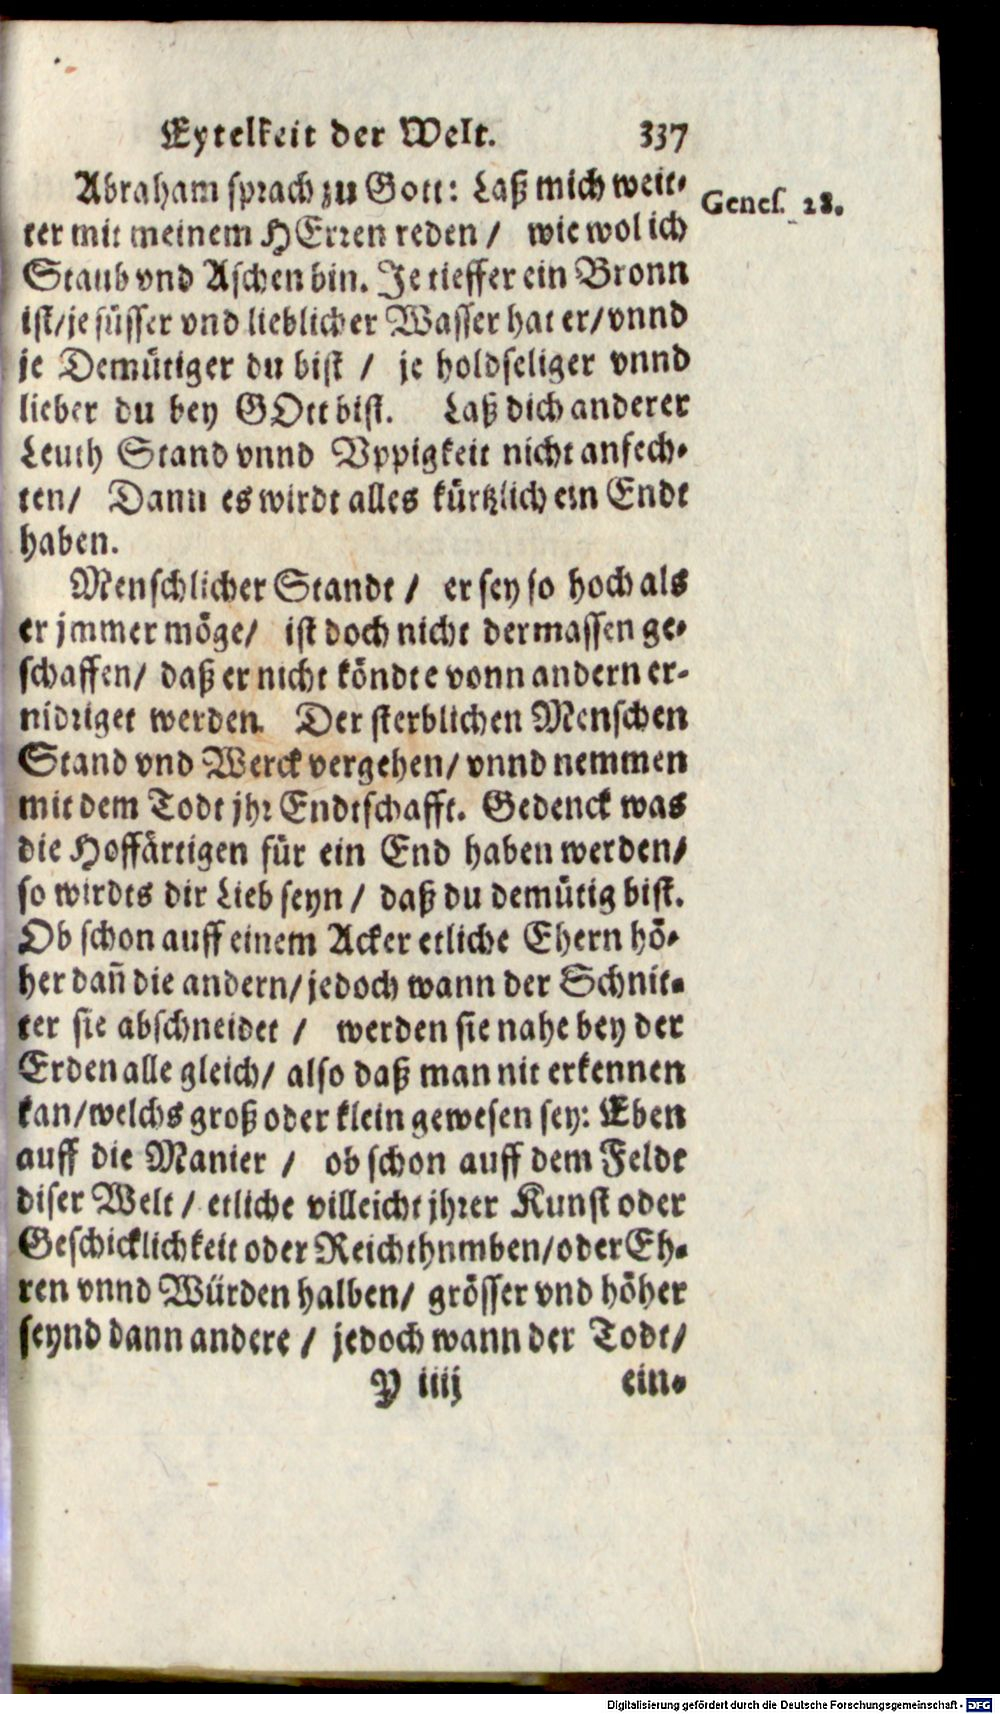 Eytelkeit der Welt. 337
Abraham sprach zu Gott: Laß mich weit-
ter mit meinem HErren reden / wie wol ich
Staub vnd Aschen bin. Je tieffer ein Bronn
ist/je süsser vnd lieblicher Wasser hat er/vnnd
je Demütiger du bist / je holdseliger vnnd
lieber du bey GOtt bist. Laß dich anderer
Leuth Stand vnnd Vppigkeit nicht anfech-
ten/ Dann es wirdt alles kürtzlich ein Endt
haben.
Genes. 28.
Menschlicher Standt / er sey so hoch als
er jmmer möge/ ist doch nicht dermassen ge-
schaffen/ daß er nicht köndte vonn andern er-
nidriget werden. Der sterblichen Menschen
Stand vnd Werck vergehen/ vnnd nemmen
mit dem Todt jhr Endtschafft. Gedenck was
die Hoffärtigen für ein End haben werden/
so wirdts dir Lieb seyn / daß du demütig bist.
Ob schon auff einem Acker etliche Ehern hö-
her dañ die andern/jedoch wann der Schnit-
ter sie abschneidet / werden sie nahe bey der
Erden alle gleich/ also daß man nit erkennen
kan/welchs groß oder klein gewesen sey: Eben
auff die Manier / ob schon auff dem Feldt
diser Welt / etliche villeicht jhrer Kunst oder
Geschicklichkeit oder Reichthnmben/oder Eh-
ren vnnd Würden halben/ grösser vnd höher
seynd dann andere / jedoch wann der Todt/
P iiij ein-
Digitalisierung gefördert durch die Deutsche Forschungsgemeinschaft - DFG